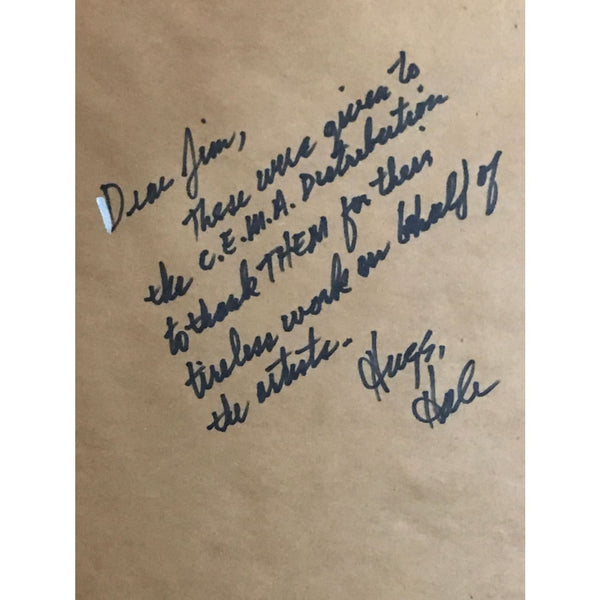 Dear Jim,
These were given to
the C.E.M.A. Distribution
to thank THEM for their
tireless work on behalf of
the artists.
Hugs,
Hale